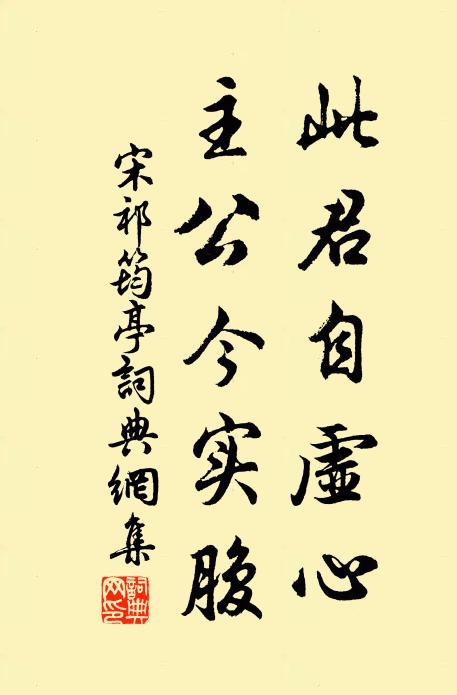 此君自虚心
主公今实腹
宋祁筠亭詞典網集
詞典網印